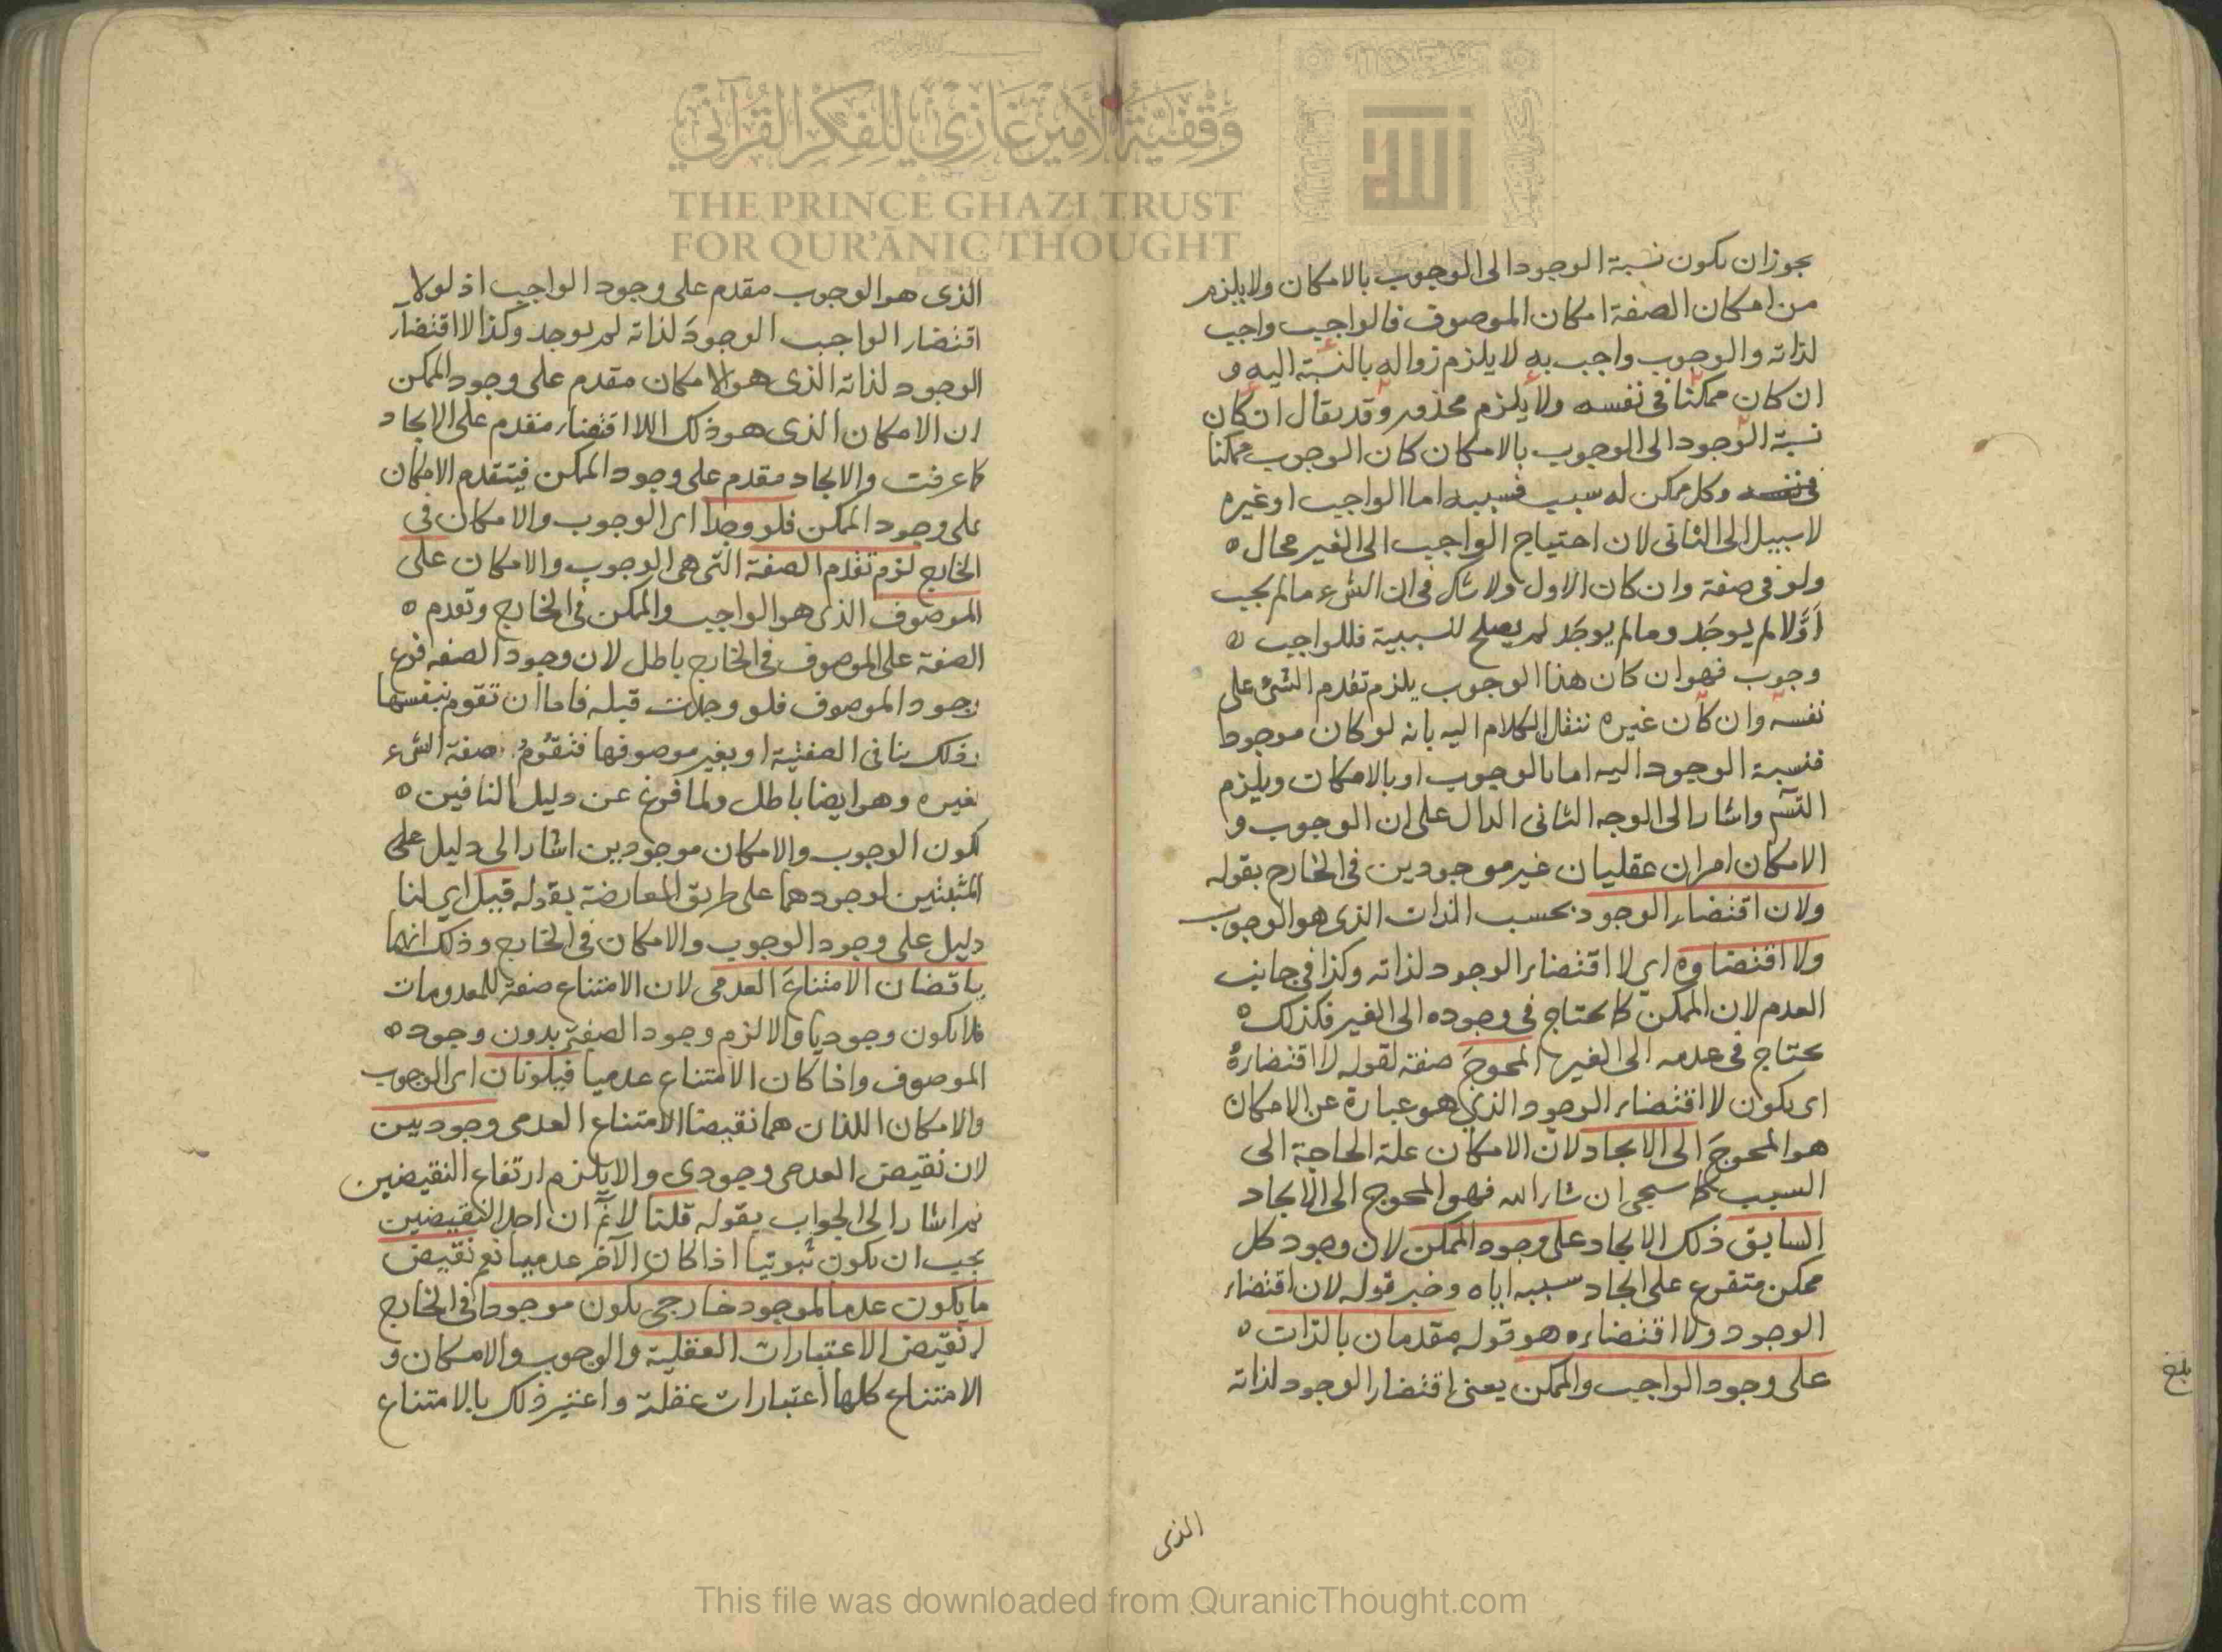 وقفية الأمير غازي للفكر القرآني
THE PRINCE GHAZI TRUST
FOR QUR'ĀNIC THOUGHT
الله
يجوز ان يكون نسبة الوجود الى الوجوب بالامكان ولا يلزم
من امكان الصفة امكان الموصوف فالواجب واجب
لذاته والوجوب واجب به لا يلزم زواله بالنسبة اليه و
ان كان ممكنا في نفسه ولا يلزم محذور وقد يقال ان كان
نسبة الوجود الى الوجوب بالامكان كان الوجوب ممكنا
في نفسه وكل ممكن له سبب فسببه اما الواجب او غيره
لا سبيل الى الثاني لان احتياج الواجب الى الغير محال ه
ولو في صفة وان كان الاول ولا شك في ان الشيء ما لم يجب
اَوَّلا لم يوجَد وما لم يوجَد لم يصلح للسببية فللواجب ه
وجوب فهو ان كان هذا الوجوب يلزم تقدم الشئ على
نفسه وان كان غيره ننقل الكلام اليه بانه لو كان موجودا
فنسبة الوجود اليه اما بالوجوب او بالامكان ويلزم
التسم واشار الى الوجه الثاني الدال على ان الوجوب و
الامكان امران عقليان غير موجودين في الخارج بقوله
ولان اقتضاء الوجود بحسب الذات الذي هو الوجوب
ولا اقتضاوه اي لا اقتضاء الوجود لذاته وكذا في جانب
العدم لان الممكن كما يحتاج في وجوده الى الغير فكذلك ه
يحتاج في عدمه الى الغير المحوجَ صفة لقوله لا اقتضاءهُ
اى يكون لا اقتضاء الوجود الذي هو عبارة عن الامكان
هو المحوجَ الى الايجاد لان الامكان علة الحاجة الى
السبب كما سيجى ان شاء الله فهو المحوج الى الايجاد
السابق ذلك الايجاد على وجود الممكن لان وجود كل
ممكن متفرع على ايجاد سببه اياه وخبر قوله لان اقتضاء
الوجود ولا اقتضاءه هو قوله مقدمان بالذات ه
على وجود الواجب والممكن يعني اقتضاء الوجود لذاته
الذى
بلغ
الذى هو الوجوب مقدم على وجود الواجب اذ لولا
اقتضاء الواجب الوجودَ لذاته لم يوجد وكذا لا اقتضآء
الوجود لذاته الذى هو الامكان مقدم على وجود الممكن
لان الامكان الذى هو ذلك اللا اقتضاء مقدم على الايجاد
كما عرفت والايجاد مقدم على وجود الممكن فيتقدم الامكان
على وجود الممكن فلو وجدا اى الوجوب والامكان في
الخارج لزم تقدم الصفة التى هى الوجوب والامكان على
الموصوف الذى هو الواجب والممكن في الخارج وتقدم ه
الصفة على الموصوف في الخارج باطل لان وجود الصفه فرع
وجود الموصوف فلو وجدت قبله فاما ان تقوم بنفسها
وذلك ينافى الصفتية او بغير موصوفها فتقومُ صفة الشىء
بغيره وهو ايضا باطل ولما فرغ عن دليل النافين ه
لكون الوجوب والامكان موجودين اشار الى دليل على
المثبتين لوجودهما على طريق المعارضة بقوله قيل اى لنا
دليل على وجود الوجوب والامكان في الخارج وذلك انهما
يناقضان الامتناعَ العدمى لان الامتناع صفة للمعدومات
فلا يكون وجوديا والا لزم وجود الصفة بدون وجود ه
الموصوف واذا كان الامتناع عدميا فيكونان اى الوجوب
والامكان اللذان هما نقيضا الامتناع العدمى وجوديين
لان نقيض العدمى وجودى والا يلزم ارتفاع النقيضين
ثم اشار الى الجواب بقوله قلنا لا نم ان احد النقيضين
يجب ان يكون ثبوتيا اذا كان الآخر عدميا نعم نقيض
ما يكون عدما لموجود خارجي يكون موجودا في الخارج
لا نقيض الاعتبارات العقلية والوجوب والامكان و
الامتناع كلها اعتبارات عقلية واعتبر ذلك بالامتناع
This file was downloaded from QuranicThought.com